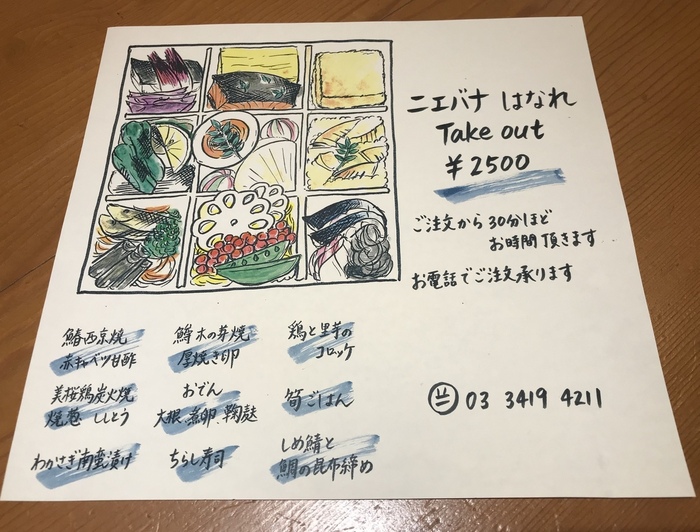 ニエバナ はなれ
Take out
¥2500
ご注文から30分ほど
お時間頂きます
お電話でご注文承ります
鰆西京焼
赤キャベツ甘酢
鱒木の芽焼
厚焼き卵
鶏と里芋の
コロッケ
美桜鶏炭火焼
焼葱 ししとう
おでん
大根、煮卵、鞠麩
筍ごはん
わかさぎ南蛮漬け
ちらし寿司
しめ鯖と
鯛の昆布締め
03 3419 4211